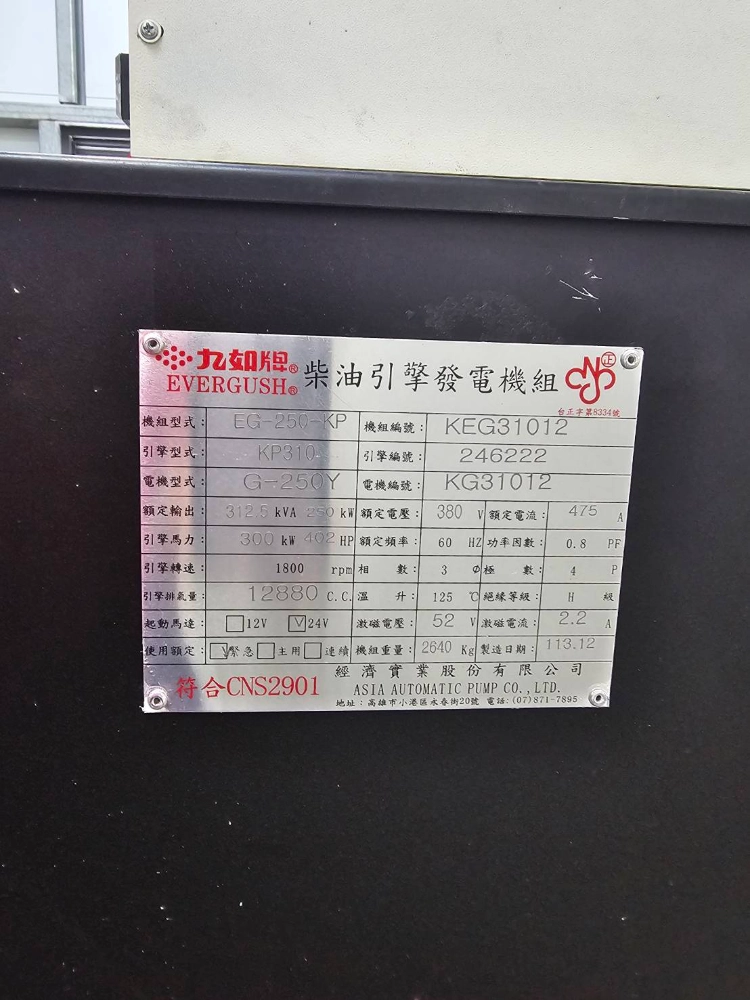 九如牌® 柴油引擎發電機組 CNS 正
EVERGUSH®
台正字第8334號
機組型式： EG-250-KP 機組編號： KEG31012
引擎型式： KP310 引擎編號： 246222
電機型式： G-250Y 電機編號： KG31012
額定輸出： 312.5 kVA 250 kW 額定電壓： 380 V 額定電流： 475 A
引擎馬力： 300 kW 402 HP 額定頻率： 60 HZ 功率因數： 0.8 PF
引擎轉速： 1800 rpm 相數： 3 Φ 極數： 4 P
引擎排氣量： 12880 C.C. 溫升： 125 ℃ 絕緣等級： H 級
起動馬達： □12V ☑24V 激磁電壓： 52 V 激磁電流： 2.2 A
使用額定： ☑緊急 □主用 □連續 機組重量： 2640 Kg 製造日期： 113.12
經濟實業股份有限公司
符合CNS2901 ASIA AUTOMATIC PUMP CO., LTD.
地址：高雄市小港區永春街20號 電話:(07)871-7895